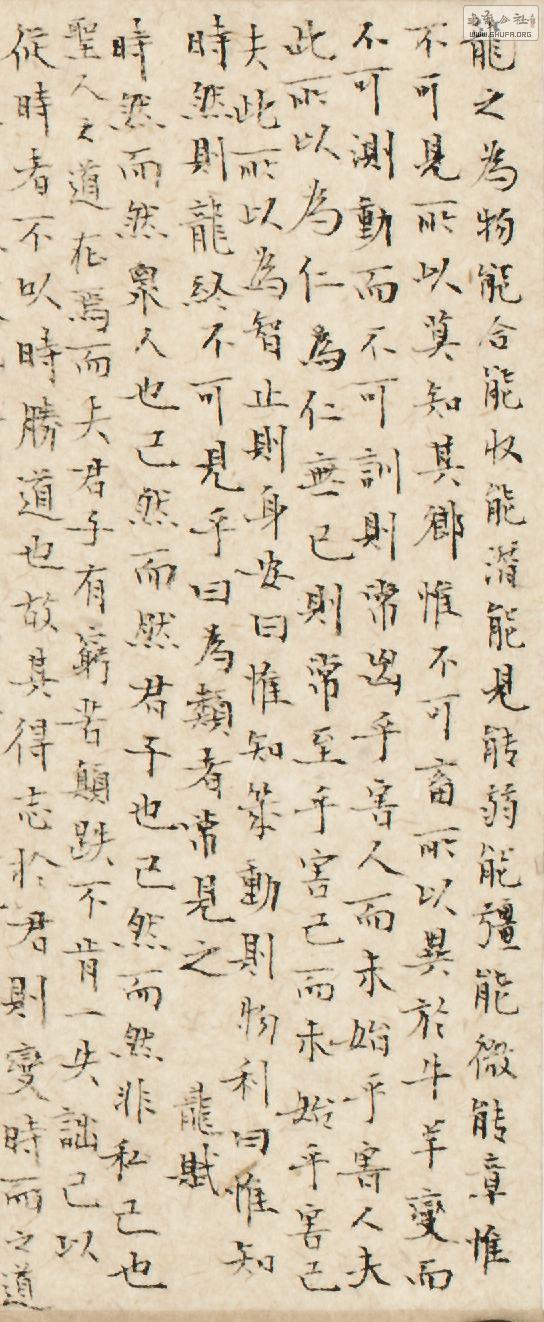 龍之為物能合能收能潛能見能弱能彊能微能章惟
不可見所以莫知其鄉惟不可畜所以異於牛羊變而
不可測動而不可訓則常出乎害人而未始乎害人夫
此所以為仁為仁無已則常至乎害己而未始乎害己
夫此所以為智止則身安曰惟知動則物利曰惟知
時然則龍終不可見乎曰為類者常見之
龍賦
時然而然衆人也己然而然君子也己然而然非私己也
聖人之道在焉而夫君子有窮苦顛跌不肯一失詘己以
從時者不以時勝道也故其得志於君則變時而之道
WWW.SHUFA.ORG